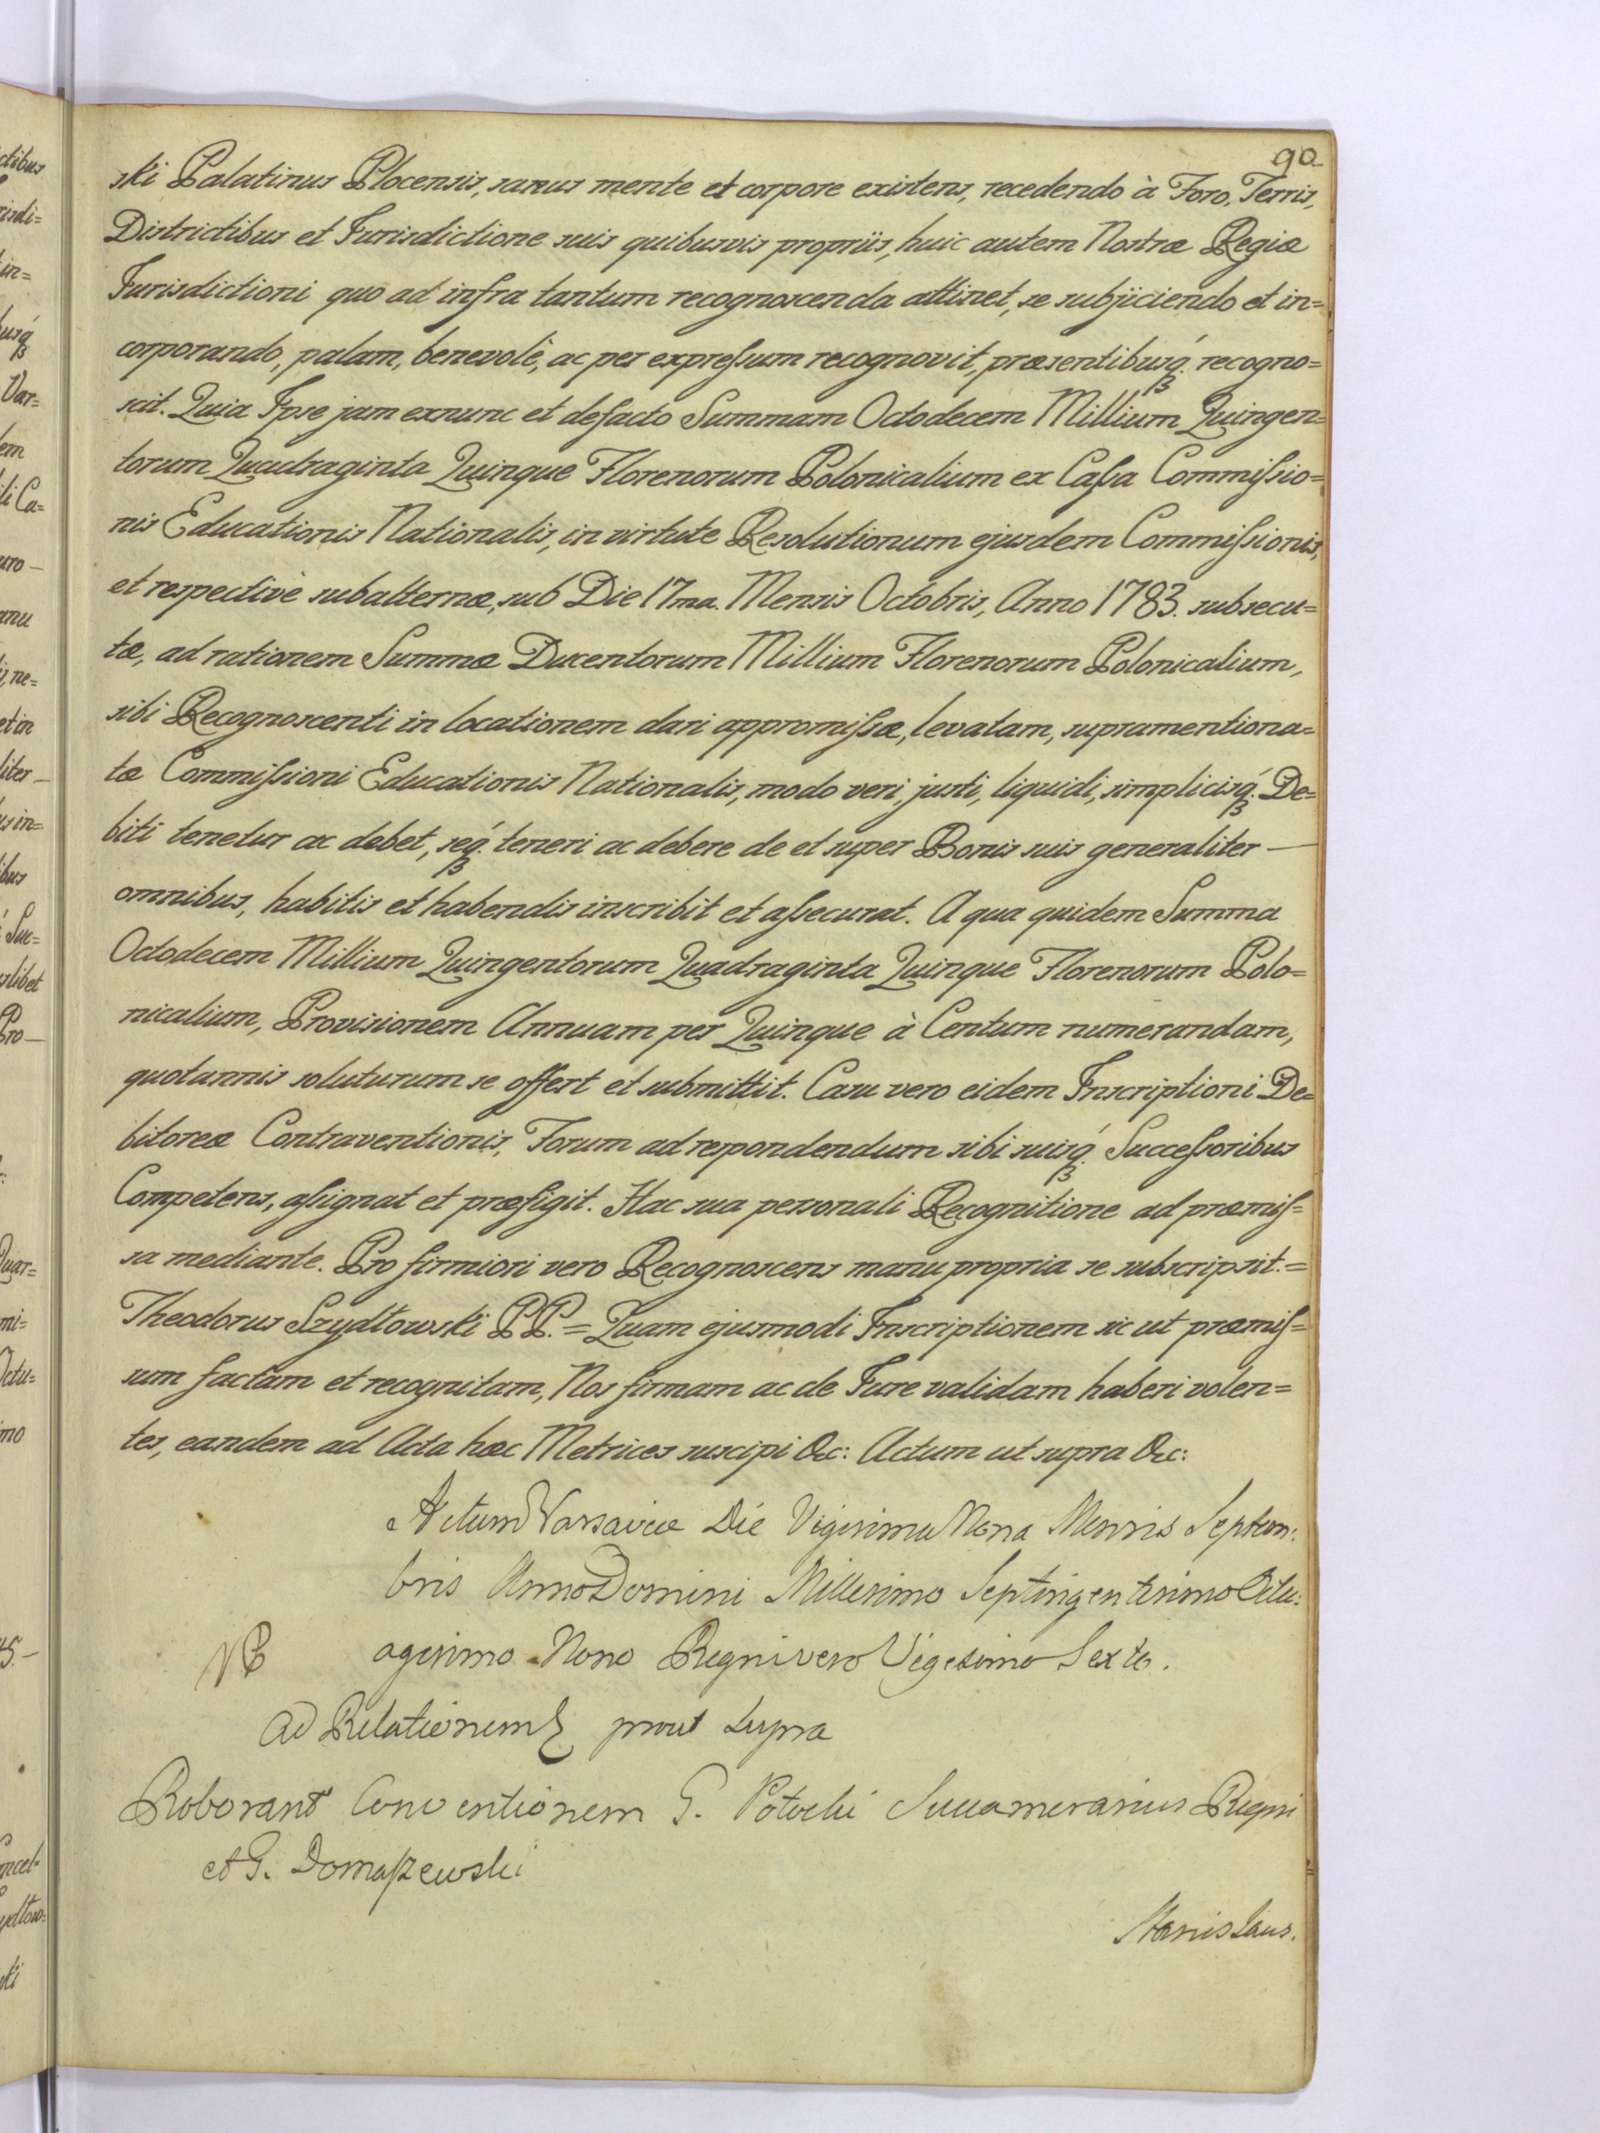 90
ski Palatinus Plocensis, sanus mente et corpore existens, recedendo à Foro, Terris,
Districtibus et Jurisdictione suis quibusvis propriis, huic autem Nostræ Regiæ
Jurisdictioni quo ad infra tantum recognoscenda attinet, se subjiciendo et in=
corporando, palam, benevolè, ac per expreſsum recognovit, præsentibusq́ꝫ. recogno=
scit. Quia Ipse jam exnunc et defacto Summam Octodecem Millium Quingen=
torum Quadraginta Quinque Florenorum Polonicalium ex Caſsa Commiſsio=
nis Educationis Nationalis, in virtute Resolutionum ejusdem Commiſsionis,
et respectivè subalternæ, sub Die 17ma. Mensis Octobris, Anno 1783. subsecu=
tæ, ad rationem Summæ Ducentorum Millium Florenorum Polonicalium,
sibi Recognoscenti in locationem dari appromiſsæ, levatam, supramentiona=
tæ Commiſsioni Educationis Nationalis, modo veri, justi, liquidi, simplicisq́ꝫ. De=
biti tenetur ac debet, seq́ꝫ. teneri ac debere de et super Bonis suis generaliter —
omnibus, habitis et habendis inscribit et aſsecurat. A qua quidem Summa
Octodecem Millium Quingentorum Quadraginta Quinque Florenorum Polo=
nicalium, Provisionem Annuam per Quinque à Centum numerandam,
quotannis soluturum se offert et submittit. Casu vero eidem Inscriptioni De=
bitoreæ Contraventionis, Forum ad respondendum sibi suisq́ꝫ. Succeſsoribus
Competens, aſsignat et præfigit. Hac sua personali Recognitione ad præmiſ=
sa mediante. Pro firmiori vero Recognoscens manu propria se subscripsit. =
Theodorus Szydłowski PP. = Quam ejusmodi Inscriptionem sic ut præmiſ=
sum factam et recognitam, Nos firmam ac de Jure validam haberi volen=
tes, eandem ad Acta hæc Metrices suscipi &c: Actum ut supra &c:
Actum Varsaviæ Die Vigesima Nona Mensis Septem:
bris Anno Domini Millesimo Septingentesimo Octu:
agesimo Nono Regni vero Vigesimo Sexto.
NB
Ad Relationem prout supra
Roborant Conventionem G. Potocki Succamerarius Regni
et G. Domaſzewski
Stanislaus.